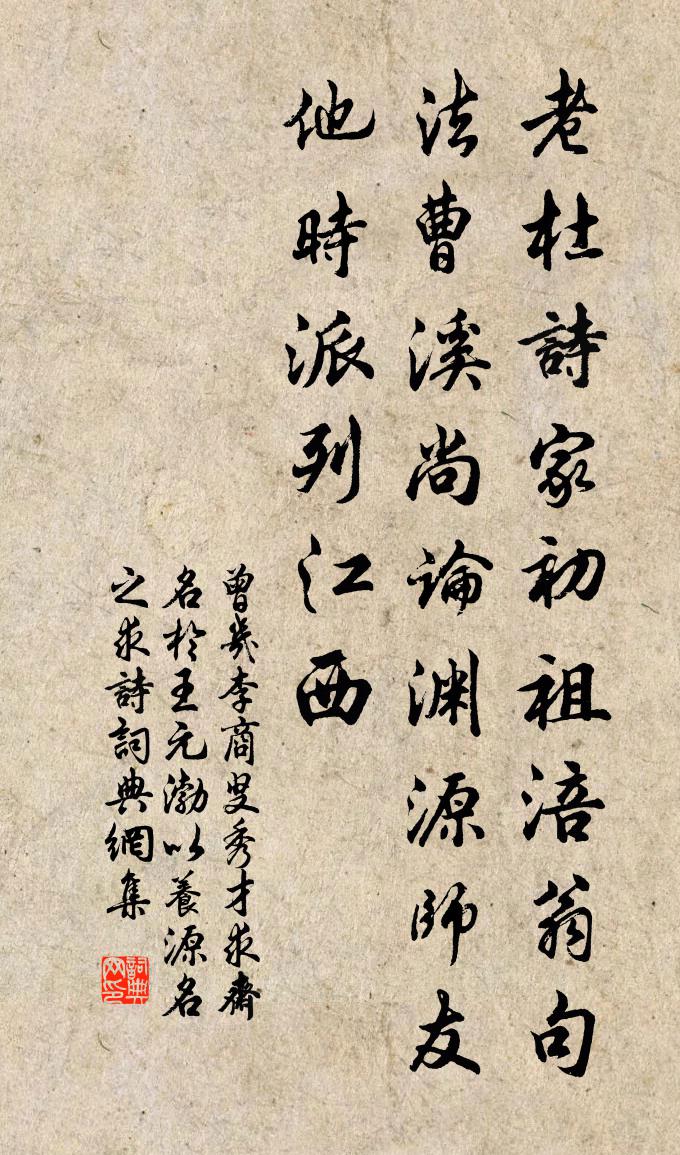 老杜詩家初祖涪翁句
法曹溪尚論淵源師友
他時派列江西
曾幾李商叟秀才求齋
名於王元渤以養源名
之求詩詞典網集
詞典
网印